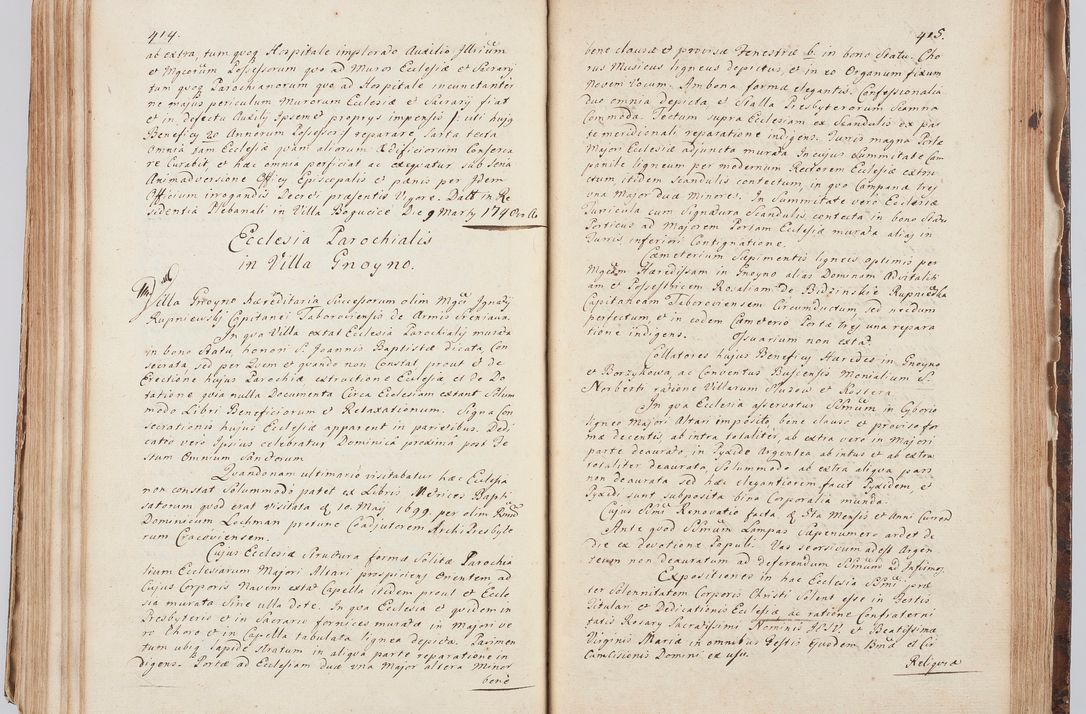 414.
ab extra, tum quoq Hospitale implorato Auxilio Illrium
et Mgcorum Possessorum quo ad Muros Ecclesiæ et Sacrarÿ
tum quoq Parochianorum quo ad Hospitale incunctanter
ne majus periculum Murorum Ecclesiæ et Sacrarÿ fiat
et in defectu Auxilÿ Ipsemet proprys impensis uti hujq
Beneficÿ 20 Annorum Possessor reparare, Sarta tecta
omnia tam Ecclesiæ quam aliorum Ædificiorum Conserva
re Curabit, et hæc omnia perficiat ac exequatur sub Seria
Animadversione Officÿ Episcopalis et pænis per Idem
Officium irrogandis Decreti præsentis Vigore. Datt in Re
sidentia Plebanali in Villa Bogucice Die 9 Martÿ 1740
Ecclesia Parochialis
in Villa Gnoyno.
Villa Gnoyno hæreditaria Successorum olim Mgci Ignatÿ
Rupniewskÿ Capitanei Taboroviensis de Armis Sreniava.
In qua Villa extat Ecclesia Parochialis murata
in bono Statu, honori S. Joannis Baptistæ dicata, Con
secrata, sed per Quem et quando non Constat prout et de
Erectione hujus Parochiæ extructione Ecclesiæ et de Do
tatione quia nulla Documenta Circa Ecclesiam extant Solum
modo Libri Beneficiorum et Retaxationum. Signa Con
secrationis hujus Ecclesiæ apparent in parietibus. Dedi
catio vero Ipsius celebratur Dominica proxima post Fe
stum Omnium Sanctorum
Quandonam ultimario visitabatur hæc Ecclesia
non constat Solummodo patet ex Libris Metrices Bapti
satorum quod erat visitata d. 10. Maÿ 1699. per olim Rndũ
Dominicum Lochman protunc Coadjutorem ArchiPresbyte
rum Cracoviensem.
Cujus Ecclesiæ Structura forma Solita Parochia
lium Ecclesiarum Majori Altari prospiciens Orientem ad
Cujus Corporis Navem extat Capella itidem prout et Eccle
sia murata Sine ulla dote. In qua Ecclesia et quidem in
Presbyterio et in Sacrario fornices murata in Majori ve
ro Choro et in Capella tabulata lignea depicta. Pavimen
tum ubiq lapide Stratum in aliqua parte reparatione in
digens. Portæ ad Ecclesiam duæ una Major altera Minor
bene
415.
bene clausæ et provisæ Fenestræ 6. in bono Statu. Cho
rus Musicus ligneus depictus, et in eo Organum fixum
Novem Vocum. Ambona forma elegantis. Confessionalia
duo omnia depicta, et Stalla Presbyterorum Scamna
Commoda. Tectum supra Ecclesiam ex Scandulis ex par
te meridionali reparatione indigens. Turris magna Portæ
Major Ecclesiæ adjuncta murata In cujus Summitate Cam
panile ligneum per modernum Rectorem Ecclesiæ extru
ctum itidem scandulis contectum, in quo Campanæ tres
una Major duæ Minores. In Summitate vero Ecclesiæ
Turricula cum Signatura Scandulis contecta in bono Statu
Porticus ad Majorem Portam Ecclesiæ murata alias in
Turris inferiori Contignatione.
Cæmeterium Sæpimentis ligneis optimis per
Mgcam Hæredissam in Gnoyno alias Dominam Advitaliti
am et Possestricem Rosaliam de Bidzinskie Rupniewska
Capitaneam Taboroviensem Circumductum sed necdum
perfectum, et in eodem Cæmeterio Portæ tres una repara
tione indigens. Ossuarium non extat.
Collatores hujus Beneficÿ Hæredes in Gnoyno
et Borzykowa, ac Conventus Buscensis Monialium S.
Norberti ratione Villarum et
In qua Ecclesia asservatur SSmum in Cyborio
ligneo Majori Altari imposito, bene clauso et proviso for
ma decentis, ab intra totaliter, ab extra vero in Majori
parte deaurato, in Pyxide Argentea ab intus et ab extra
totaliter deaurata Solummodo ab extra aliqua pars
non deaurata sed hæc elegantiorem facit Pyxidem, et
Pyxidi sunt subposita bina Corporalia munda.
Cujus SSmi Renovatio facta d. 8ta Mensis et Anni Currend
Ante quod SSmum Lampas Sæpenumero ardet de
die ex devotione Populi. Vas seorsivum adest Argen
teum non deauratum ad deferendum SSmum ad Infirmos
Expositiones in hac Ecclesia SSmi præ
ter Solennitatem Corporis Christi Solent esse in Festis
Titulari et Dedicationis Ecclesiæ ac ratione Confraterni
tatis Rosarÿ Sacratissimi Nominis et Beatissimæ
Virginis Mariæ in omnibus Festis Ejusdem Bmæ et Cir
Cumcisionis Domini ex usu.
Reliquiæ